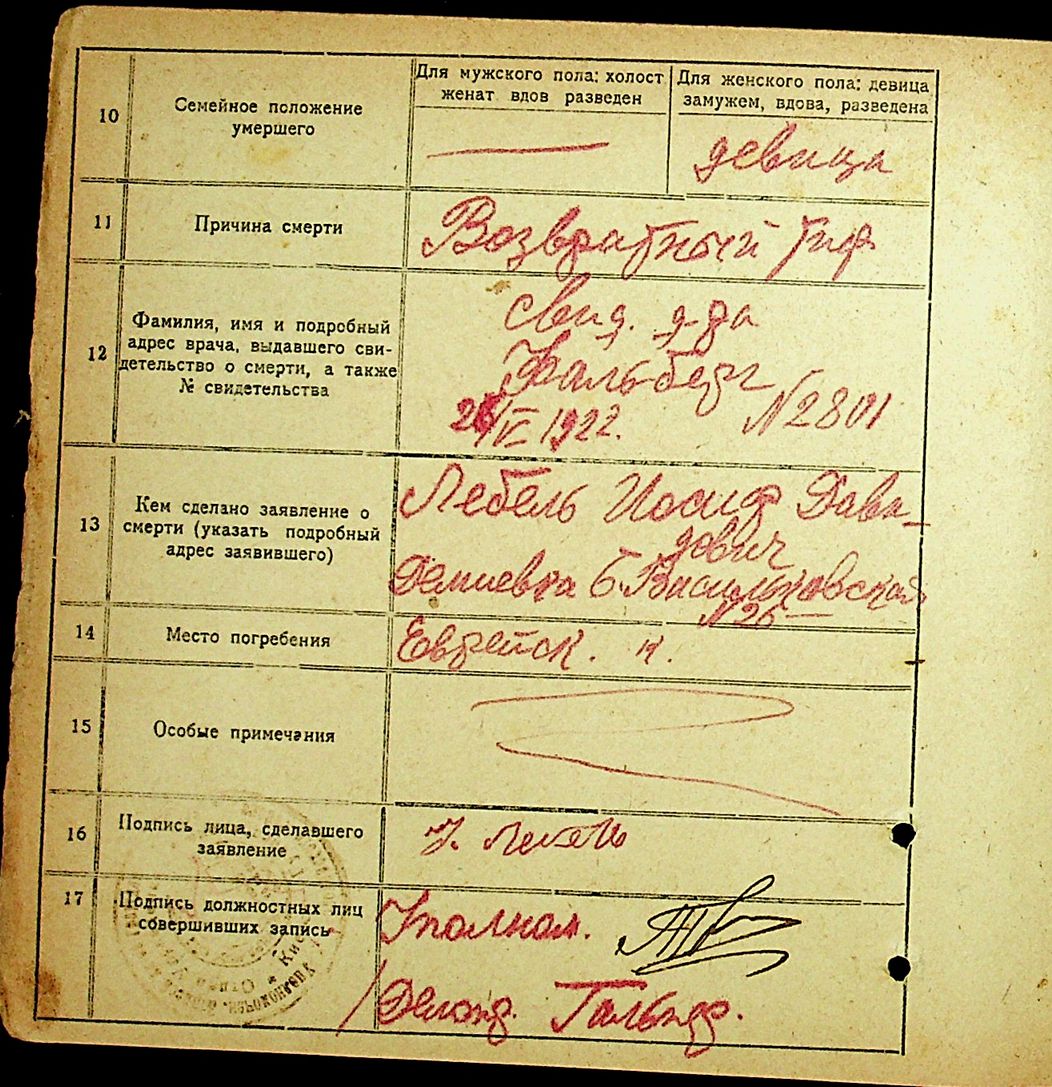 10
Семейное положение
умершего
Для мужского пола: холост
женат вдов разведен
Для женского пола: девица
замужем, вдова, разведена
девица
11
Причина смерти
Возвратный тиф
12
Фамилия, имя и подробный
адрес врача, выдавшего сви-
детельство о смерти, а также
№ свидетельства
свид. д-ра
Кальберг
26/IV 1922. N2801
13
Кем сделано заявление о
смерти (указать подробный
адрес заявившего)
Лебель Иосиф Дави-
дович
Демиевка Б. Васильковская
N26
14
Место погребения
Еврейск. к.
15
Особые примечания
16
Подпись лица, сделавшего
заявление
И. Лебель
17
Подпись должностных лиц
совершивших запись
Уполном.
Делопр.